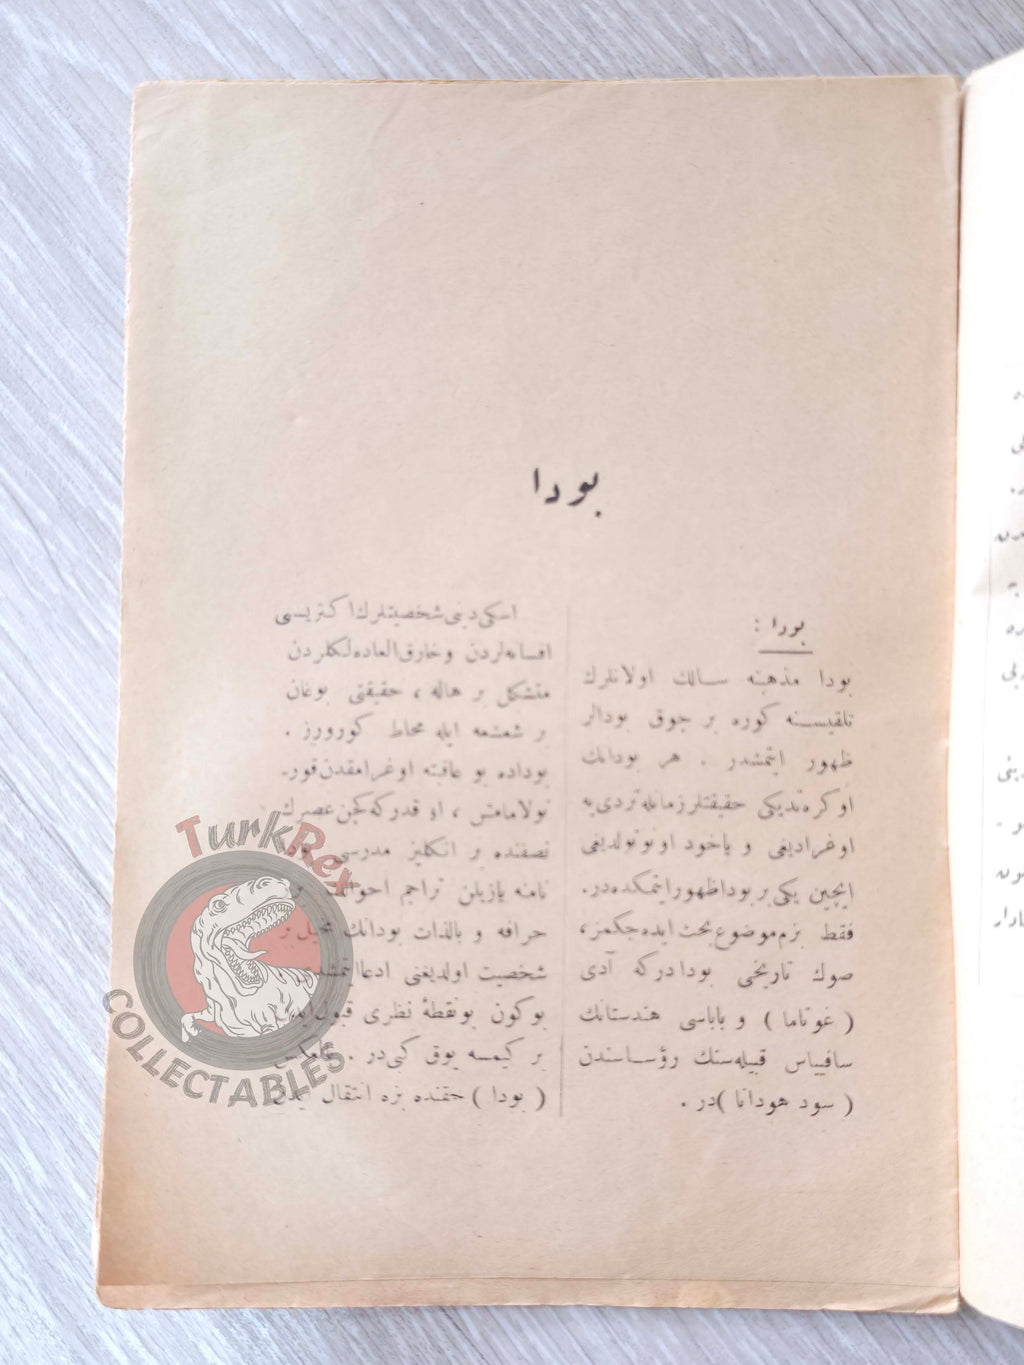 بودا
بودا :
بودا مذهبنه سالك اولانلرك
تلقيسنه كوره بر چوق بودالر
ظهور ايتمشدر . هر بودانك
اوكره تديكى حقيقتلر زمانله تردى يه
اوغراديغى و ياخود اونوتولديغى
ايچين يكى بر بودا ظهور ايتمكده در.
فقط بزم موضوع بحث ايده جكمز،
صوك تاريخى بودا دركه آدى
( غوتاما ) و باباسى هندستانك
ساقيياس قبيله سنك رؤساسندن
( سود هودانا )در .
اسكى دينى شخصيتلرك اكثريسى
افسانه لردن و خارق العاده لكلردن
متشكل بر هاله ، حقيقتى بوغان
بر شعشعه ايله محاط كورورز .
بوداده بو عاقبته اوغرامقدن قور-
تولامامش ، او قدركه كچن عصرك
نصفنده بر انكليز مدرسى
نامنه يازيلن تراجم
خرافه و بالذات بودانك مخيل بر
شخصيت اولديغنى ادعا
بوكون بو نقطۀ نظرى قبول
بر كيمسه يوق كى در .
( بودا ) حقنده بزه انتقال ايدن
TurkRex
COLLECTABLES